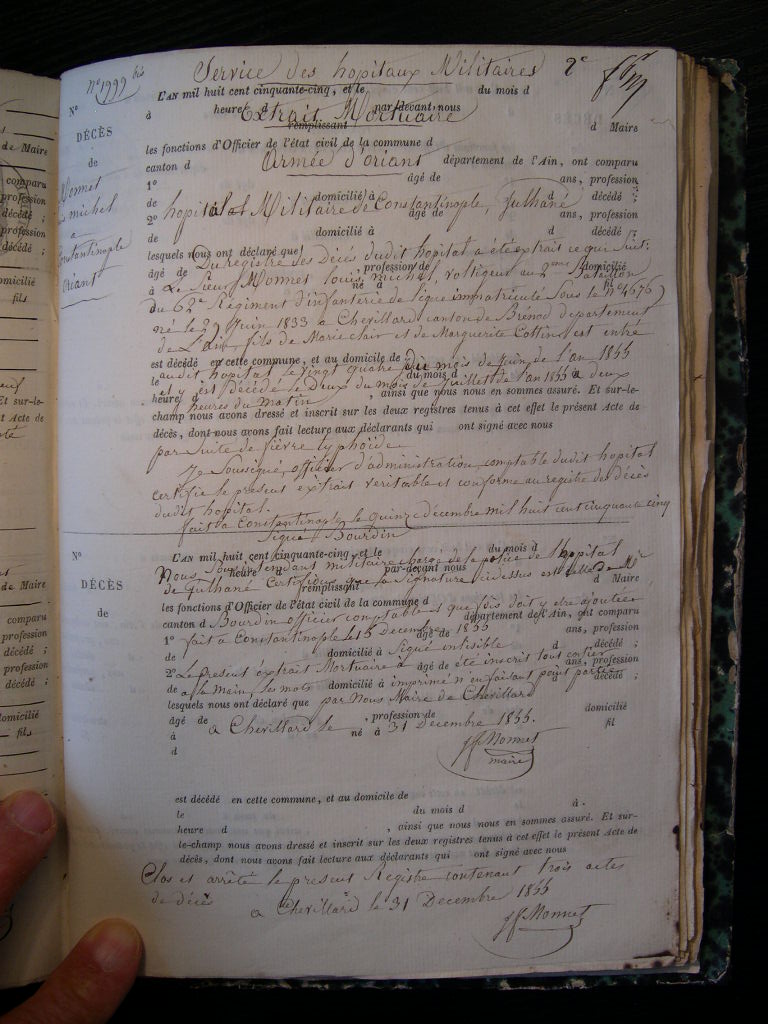 Service des hopitaux Militaires
2e
nº 1999 bis
L'AN mil huit cent cinquante-cinq, et le du mois d
Nº
à heure d par-devant nous
Extrait Mortuaire
DÉCÈS
remplissant d Maire
les fonctions d'Officier de l'état civil de la commune d
de
canton d Armée d'oriant département de l'Ain, ont comparu
Monnet
1º âgé de ans, profession
michel
de domicilié à d décédé ;
hopital Militaire de Constantinople, Gulhané
2º âgé de ans, profession
a
de domicilié à d décédé ;
Constantinople
lesquels nous ont déclaré que
Du registre des Décès dudit hopital a été extrait ce qui suit:
Oriant
âgé de profession de domicilié
à né à fil
Le Sieur Monnet louis michel, voltigeur au 2me Bataillon
du 62e Régiment d'infanterie de ligne immatriculé sous le nº 4676
né le 29 Juin 1833 a Chevillard canton de Brénod departement
de L'ain, fils de Marie clair et de Marguerite Cottin, est entré
est décédé en cette commune, et au domicile de
audit hopital le vingt quatre du mois de Juin de l'an 1855
le du mois d à
et y est décédé le Deux du mois de Juillet de l'an 1855 a deux
heure d , ainsi que nous nous en sommes assuré. Et sur-le-
heures du matin
champ nous avons dressé et inscrit sur les deux registres tenus à cet effet le présent Acte de
décès, dont nous avons fait lecture aux déclarants qui ont signé avec nous
par suite de fièvre typhoïde
Je Soussigné, officier d'administration, comptable dudit hopital
certifie le present extrait veritable et conforme au registre des Décès
dudit hopital.
fait a Constantinople le quinze decembre mil huit cent cinquante cinq
Signé Bourdin
Nº
L'AN mil huit cent cinquante-cinq, et le du mois d
Nous Sous intendant militaire chargé de la police de l'hopital
à heure par-devant nous
DÉCÈS
de Gulhané Certifions que la Signature ci dessus est celle de Mr
remplissant d Maire
les fonctions d'Officier de l'état civil de la commune d
de
Bourdin officier comptable et que fois doit y etre ajoutée
canton d département de l'Ain, ont comparu
fait a Constantinople le 15 decembre 1855
1º âgé de ans, profession
Signé inlisible
de domicilié à d décédé ;
Le present extrait Mortuaire a été inscrit tout entier
2º âgé de ans, profession
a la main, les mots imprimé n'en faisant point partie
de domicilié à d décédé ;
lesquels nous ont déclaré que par Nous Maire de Chevillard
âgé de , profession de domicilié
a Chevillard le 31 Decembre 1855.
à né à fil
d
JF Monnet
maire
est décédé en cette commune, et au domicile de
le du mois d à
heure d , ainsi que nous nous en sommes assuré. Et sur-
le-champ nous avons dressé et inscrit sur les deux registres tenus à cet effet le présent Acte de
décès, dont nous avons fait lecture aux déclarants qui ont signé avec nous
Clos et arrêté le present Registre contenant trois actes
de décès
a Chevillard le 31 Decembre 1855
JF Monnet